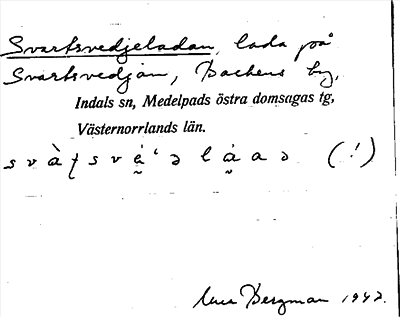 Svartsvedjeladan, lada på
Svartsvedjan, Backens by,
Indals sn, Medelpads östra domsagas tg,
Västernorrlands län.
(!)
Bergman 1942.